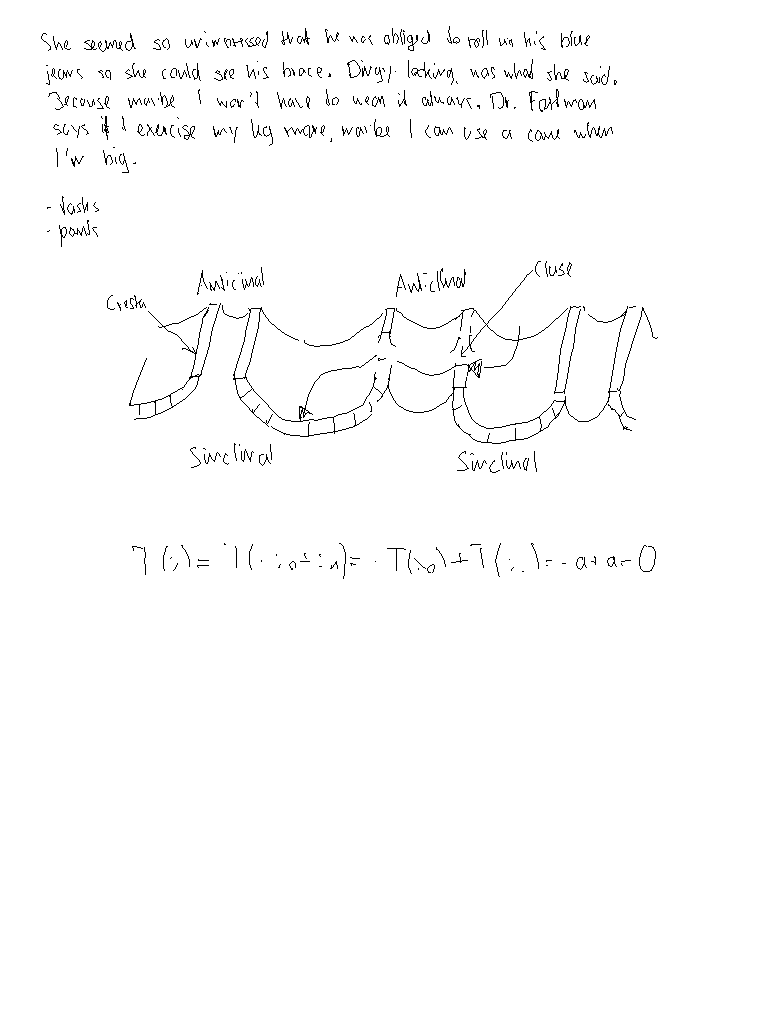 She seemed so unimpressed that he was obliged to roll up his blue
jeans so she could see his brace. Dingy looking, was what she said.
Because maybe I won't have to wear it always. Dr.
says if I exercise my leg more, maybe I can use a cane when
I'm big.
- tasks
Anticlinal
Anticlinal
Cluse
Cresta
Sinclinal
Sinclinal